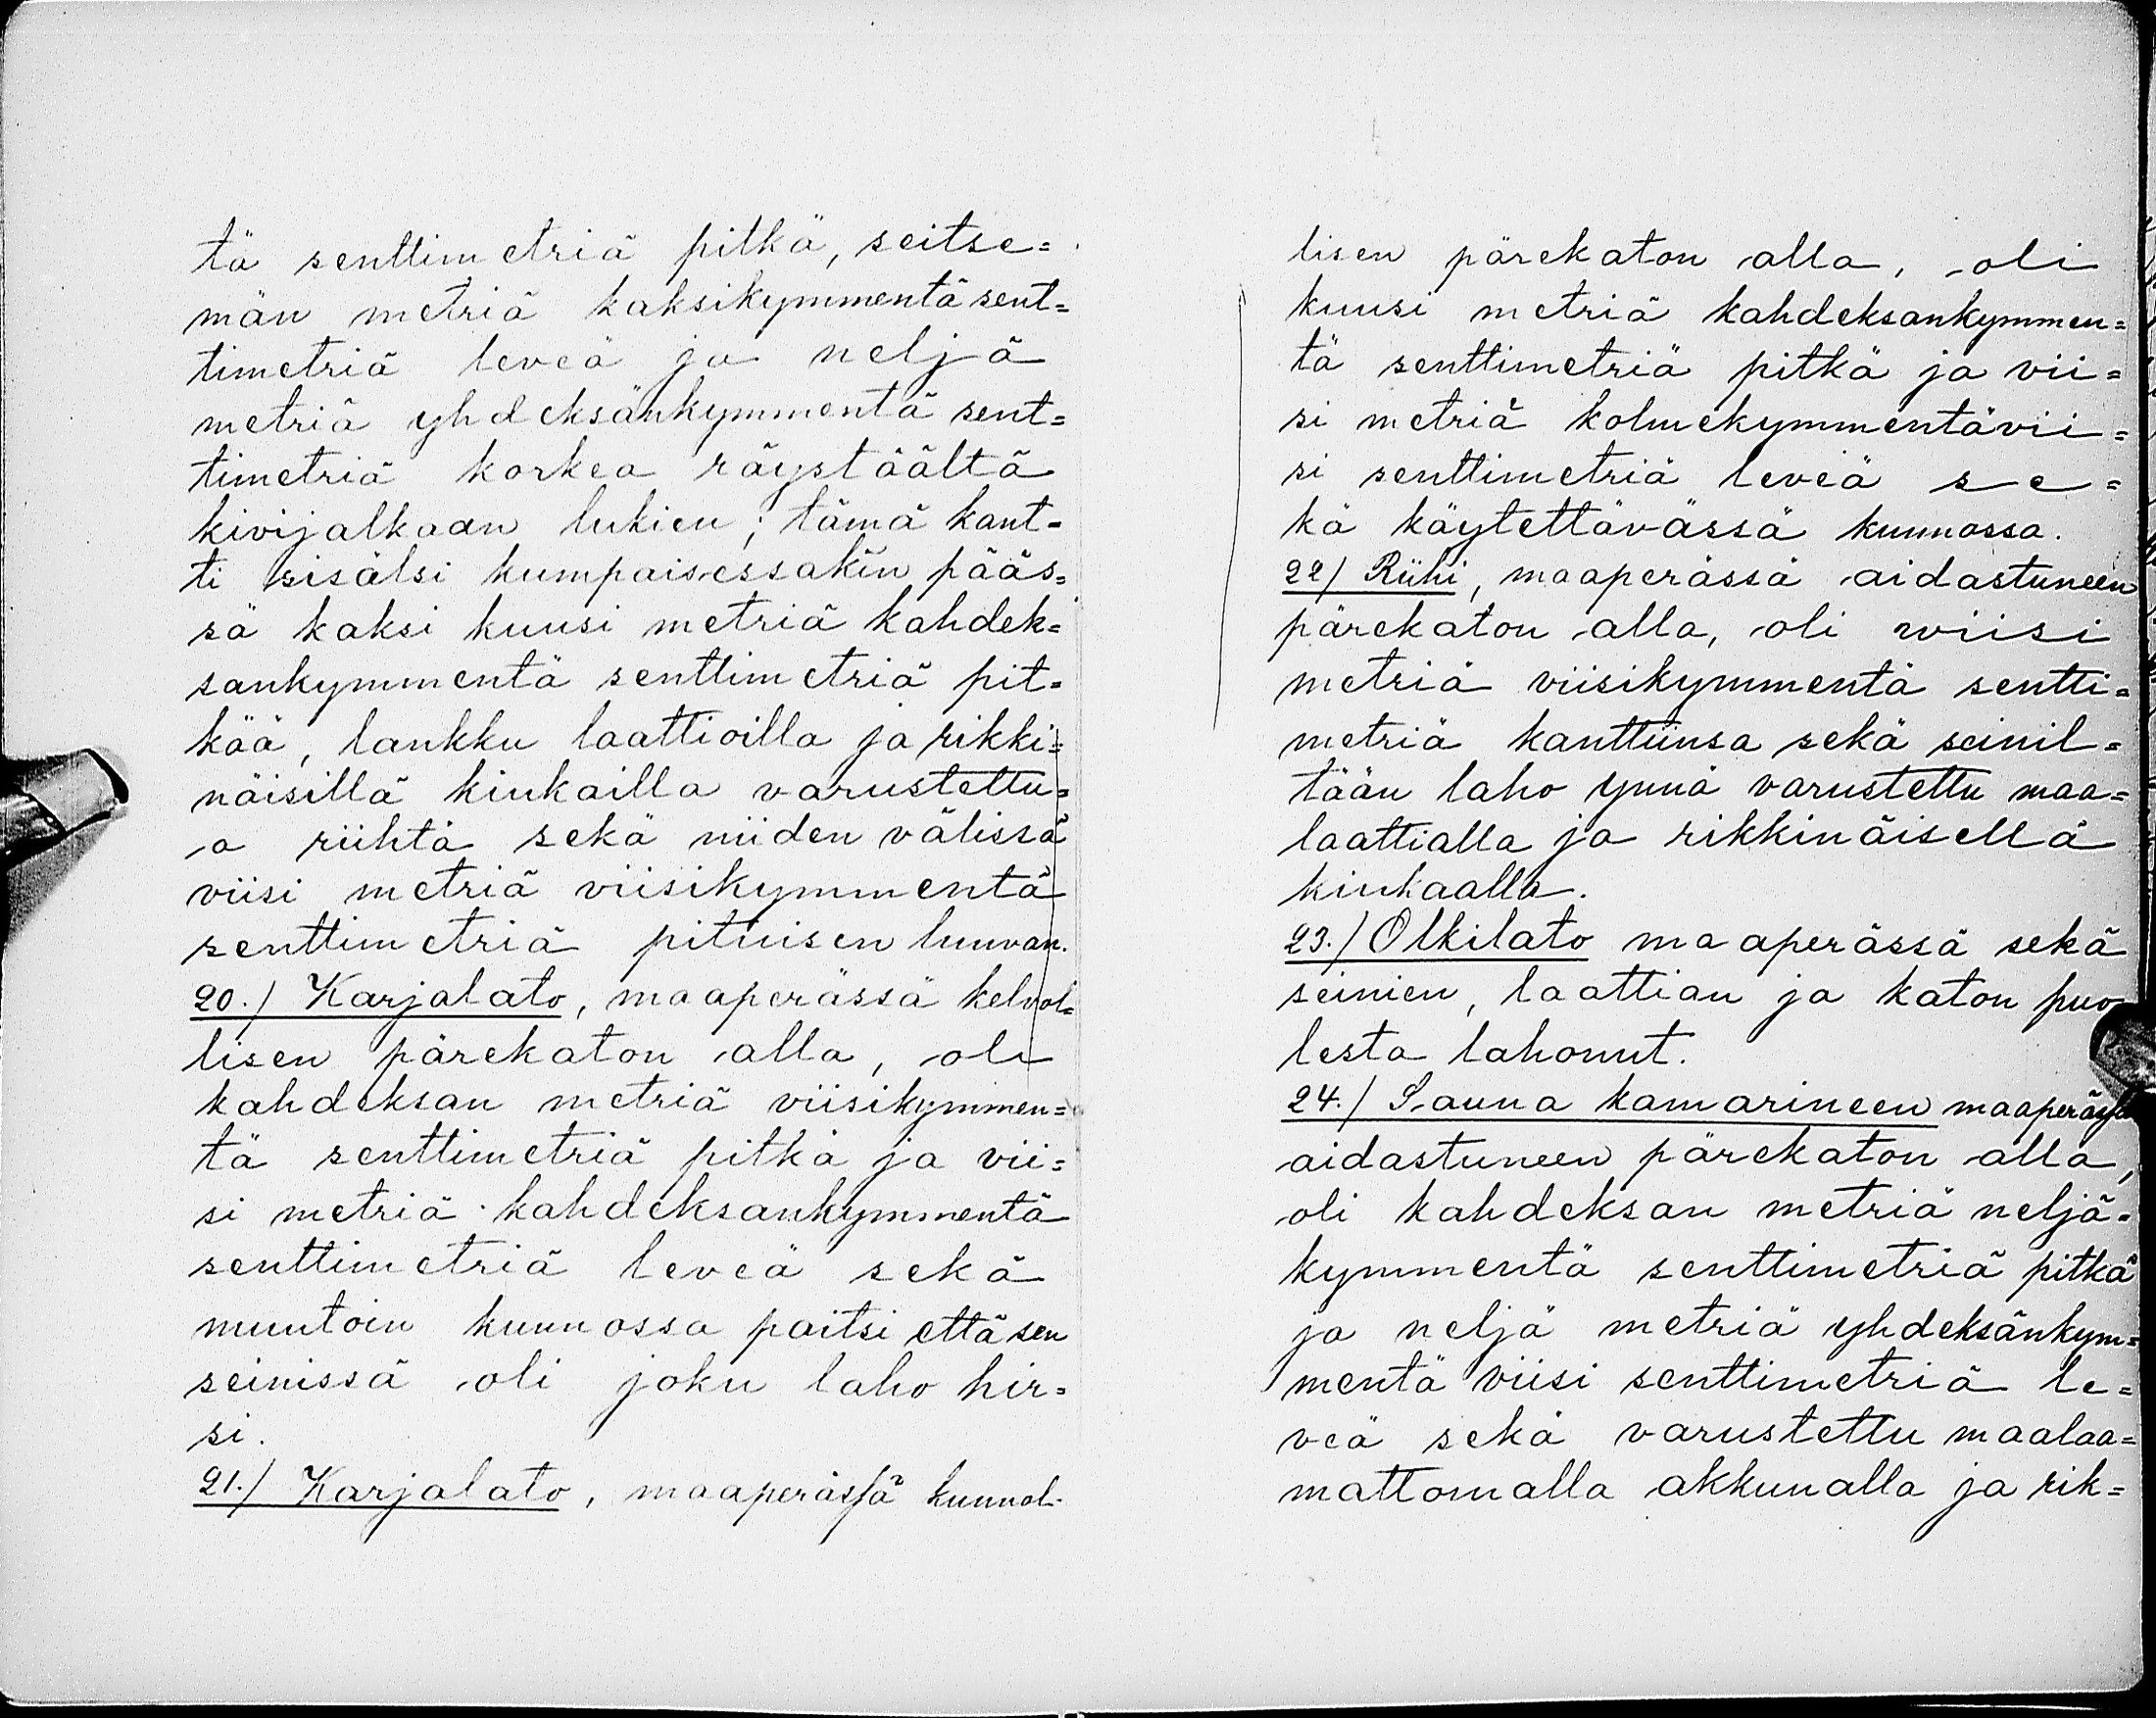 tä senttimetriä pitkä, seitse=
män metriä kaksikymmentä sent=
timetriä leveä ja neljä
metriä yhdeksänkymmentä sent=
timetriä korkea räystäältä
kivijalkaan lukien; tämä kant=
ti sisälsi kumpaisessakin pääs=
sä kaksi kuusi metriä kahdek=
sankymmentä senttimetriä pit=
kää, lankku laattioilla ja rikki=
näisillä kiukailla varustettu=
a riihtä sekä niiden välissä
viisi metriä viisikymmentä
senttimetriä pituisen luuvan.
20./ Karjalato, maaperässä kelvol=
lisen pärekaton alla, oli
kahdeksan metriä viisikymmen=
tä senttimetriä pitkä ja vii=
si metriä kahdeksankymmentä
senttimetriä leveä sekä
muutoin kunnossa paitsi että sen
seinissä oli joku laho hir=
si.
21./ Karjalato, maaperässä kunnol-
lisen pärekaton alla, oli
kuusi metriä kahdeksankymmen=
tä senttimetriä pitkä ja vii=
si metriä kolmekymmentävii=
si senttimetriä leveä se=
kä käytettävässä kunnossa.
22/ Riihi, maaperässä aidastuneen
pärekaton alla, oli wiisi
metriä viisikymmentä sentti=
metriä kanttiinsa sekä seinil=
tään laho ynnä varustettu maa=
laattialla ja rikkinäisellä
kiukaalla.
23./ Olkilato maaperässä sekä
seinien, laattian ja katon puo
lesta lahonnut.
24./ Sauna kamarineen maaperässä
aidastuneen pärekaton alla,
oli kahdeksan metriä neljä=
kymmentä senttimetriä pitkä
ja neljä metriä yhdeksänkym=
mentä viisi senttimetriä le=
veä sekä varustettu maalaa=
mattomalla akkunalla ja rik=